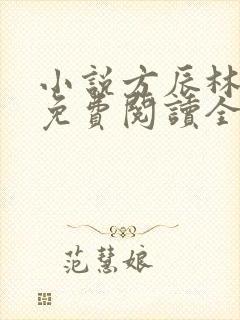 小說方辰林
免費閱讀全
范慧娘